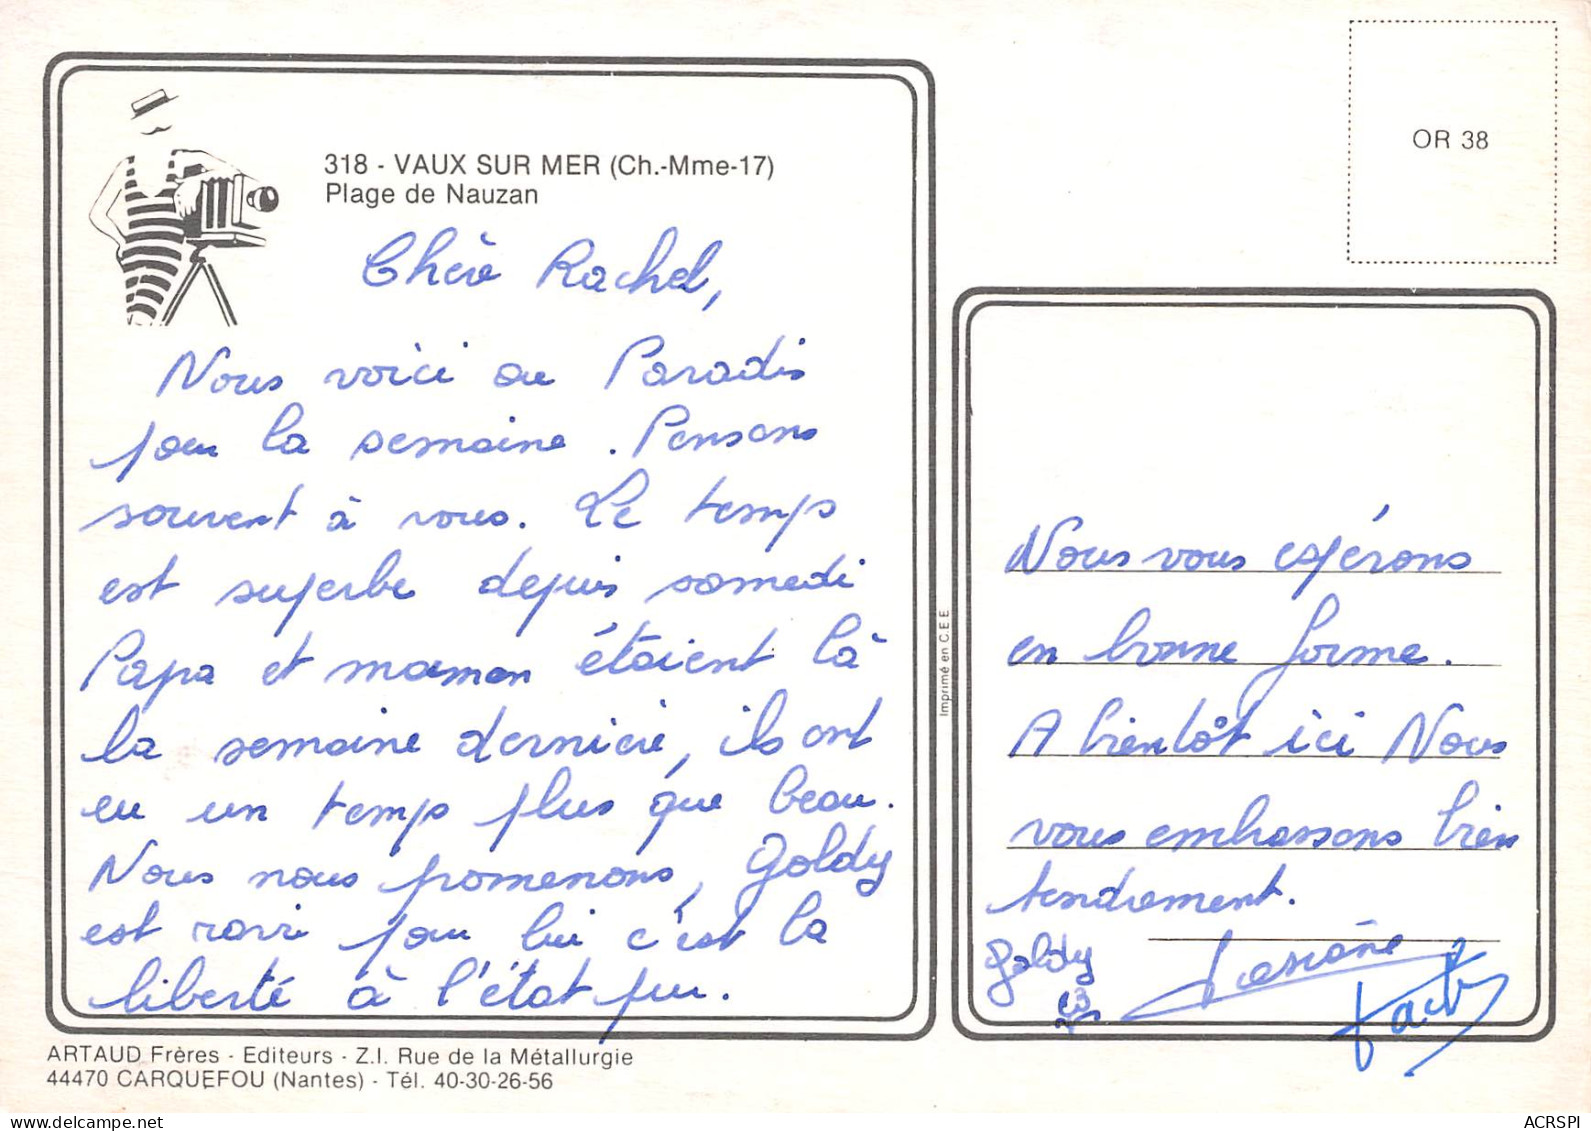 318 - VAUX SUR MER (Ch.-Mme-17)
Plage de Nauzan
Chère Rachel,
Nous voici au Paradis
pour la semaine. Pensons
souvent à vous. Le temps
est superbe depuis samedi
Papa et maman étaient là
la semaine dernière, ils ont
eu un temps plus que beau.
Nous nous promenons, Goldy
est ravi pour lui c'est la
liberté à l'état pur.
OR 38
Imprimé en C.E.E
Nous vous espérons
en bonne forme.
A bientôt ici Nous
vous embrassons bien
tendrement.
Goldy
Josiane
ARTAUD Frères - Editeurs - Z.I. Rue de la Métallurgie
44470 CARQUEFOU (Nantes) - Tél. 40-30-26-56
ACRSPI